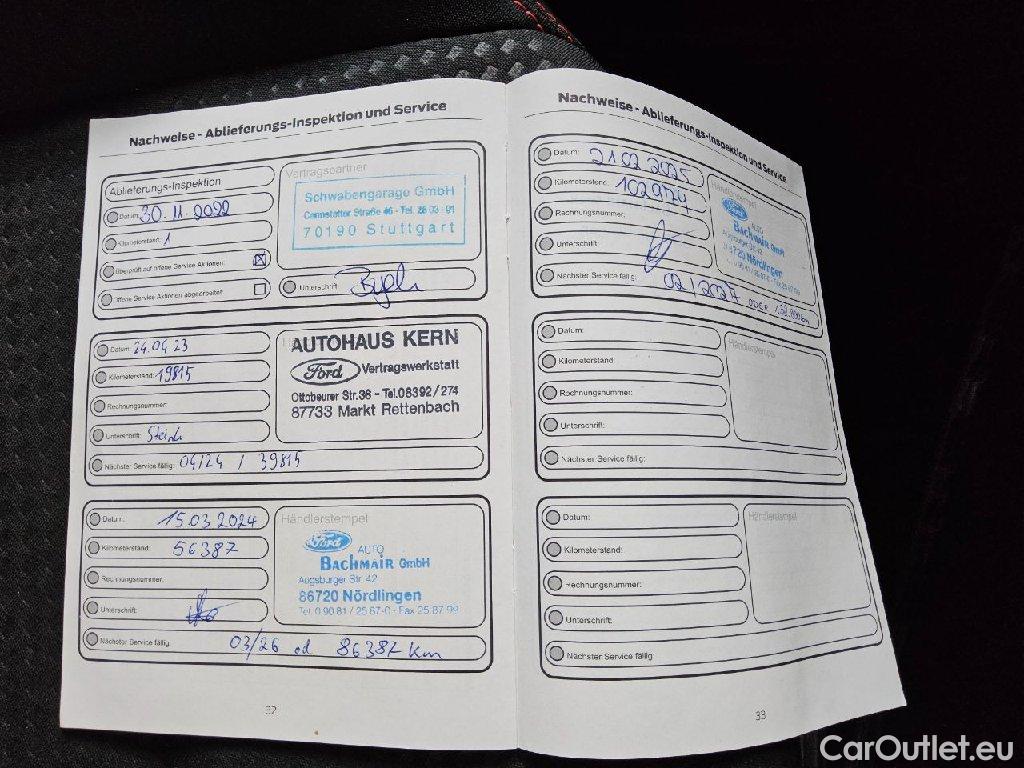 Nachweise - Ablieferungs-Inspektion und Service
Ablieferungs-Inspektion
Datum: 30.11.2022
Kilometerstand: 1
Überprüft auf offene Service Aktionen:
Offene Service Aktionen abgearbeitet:
Vertragspartner
Schwabengarage GmbH
Cannstatter Straße 46 - Tel. 28 03 - 91
70190 Stuttgart
Unterschrift:
Datum: 24.04.23
Kilometerstand: 19815
Rechnungsnummer:
Unterschrift:
Nächster Service fällig: 04/24 / 39815
AUTOHAUS KERN
Ford Vertragswerkstatt
Ottobeurer Str.36 - Tel.08392/274
87733 Markt Rettenbach
Datum: 15.03.2024
Kilometerstand: 56387
Rechnungsnummer:
Unterschrift:
Nächster Service fällig: 03/26 od 86387 km
Händlerstempel
Ford
AUTO
BACHMAIR GmbH
Augsburger Str. 42
86720 Nördlingen
Tel. 0 90 81 / 25 67-0 - Fax 25 87 99
32
Nachweise - Ablieferungs-Inspektion und Service
Datum: 21.02.2025
Kilometerstand: 102974
Rechnungsnummer:
Unterschrift:
Nächster Service fällig: 02/2027
Händlerstempel
Ford
AUTO
BACHMAIR GmbH
Augsburger Str. 42
86720 Nördlingen
Datum:
Kilometerstand:
Rechnungsnummer:
Unterschrift:
Nächster Service fällig:
Händlerstempel
Datum:
Kilometerstand:
Rechnungsnummer:
Unterschrift:
Nächster Service fällig:
Händlerstempel
33
CarOutlet.eu